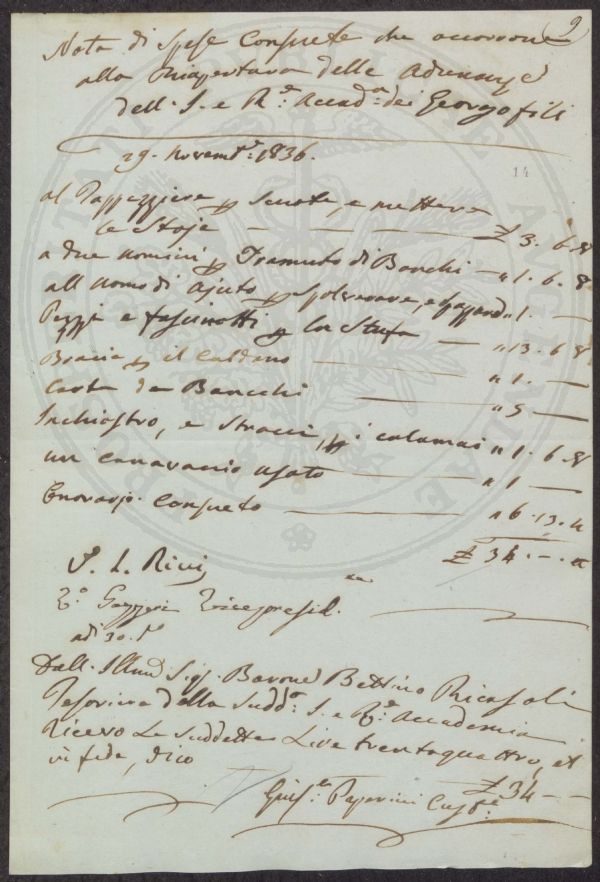 9
Nota di Spese Consuete che occorrono
alla Riapertura delle Adunanze
dell. I. e R.e Accad.a dei Georgofili
29. Novemb.e 1836.
14
al Tappezziere p scuotere, e mettere
le Stoje — £ 3. 6. 8
a due uomini p Tramuto di Banchi — " 1. 6. 8
all uomo di ajuto p spolverare, e " 1. —
Pezzi e fascinotti p la Stufa — " 13. 6. 8
Bracia p il Caldano — " 1. —
Carta da Banchi — " 5 —
Inchiostro, e stracci, p i calamai " 1. 6. 8
un canavaccio usato — " 1 —
Onorario Consueto — " 6. 13. 4
£ 34. — . —
V. Gazzeri Vicepresid.e
adi 30. d.o
Dall. Illmo Sig. Barone Bettino Ricasoli
Tesoriere della Sudd.a I. e R.e Accademia
Ricevo Le suddette Lire trentaquattro, et
in fede, dico — £ 34 — —
Gius.e Paperini Cust.e
PROSPERITATI PUBLICAE AUGENDAE